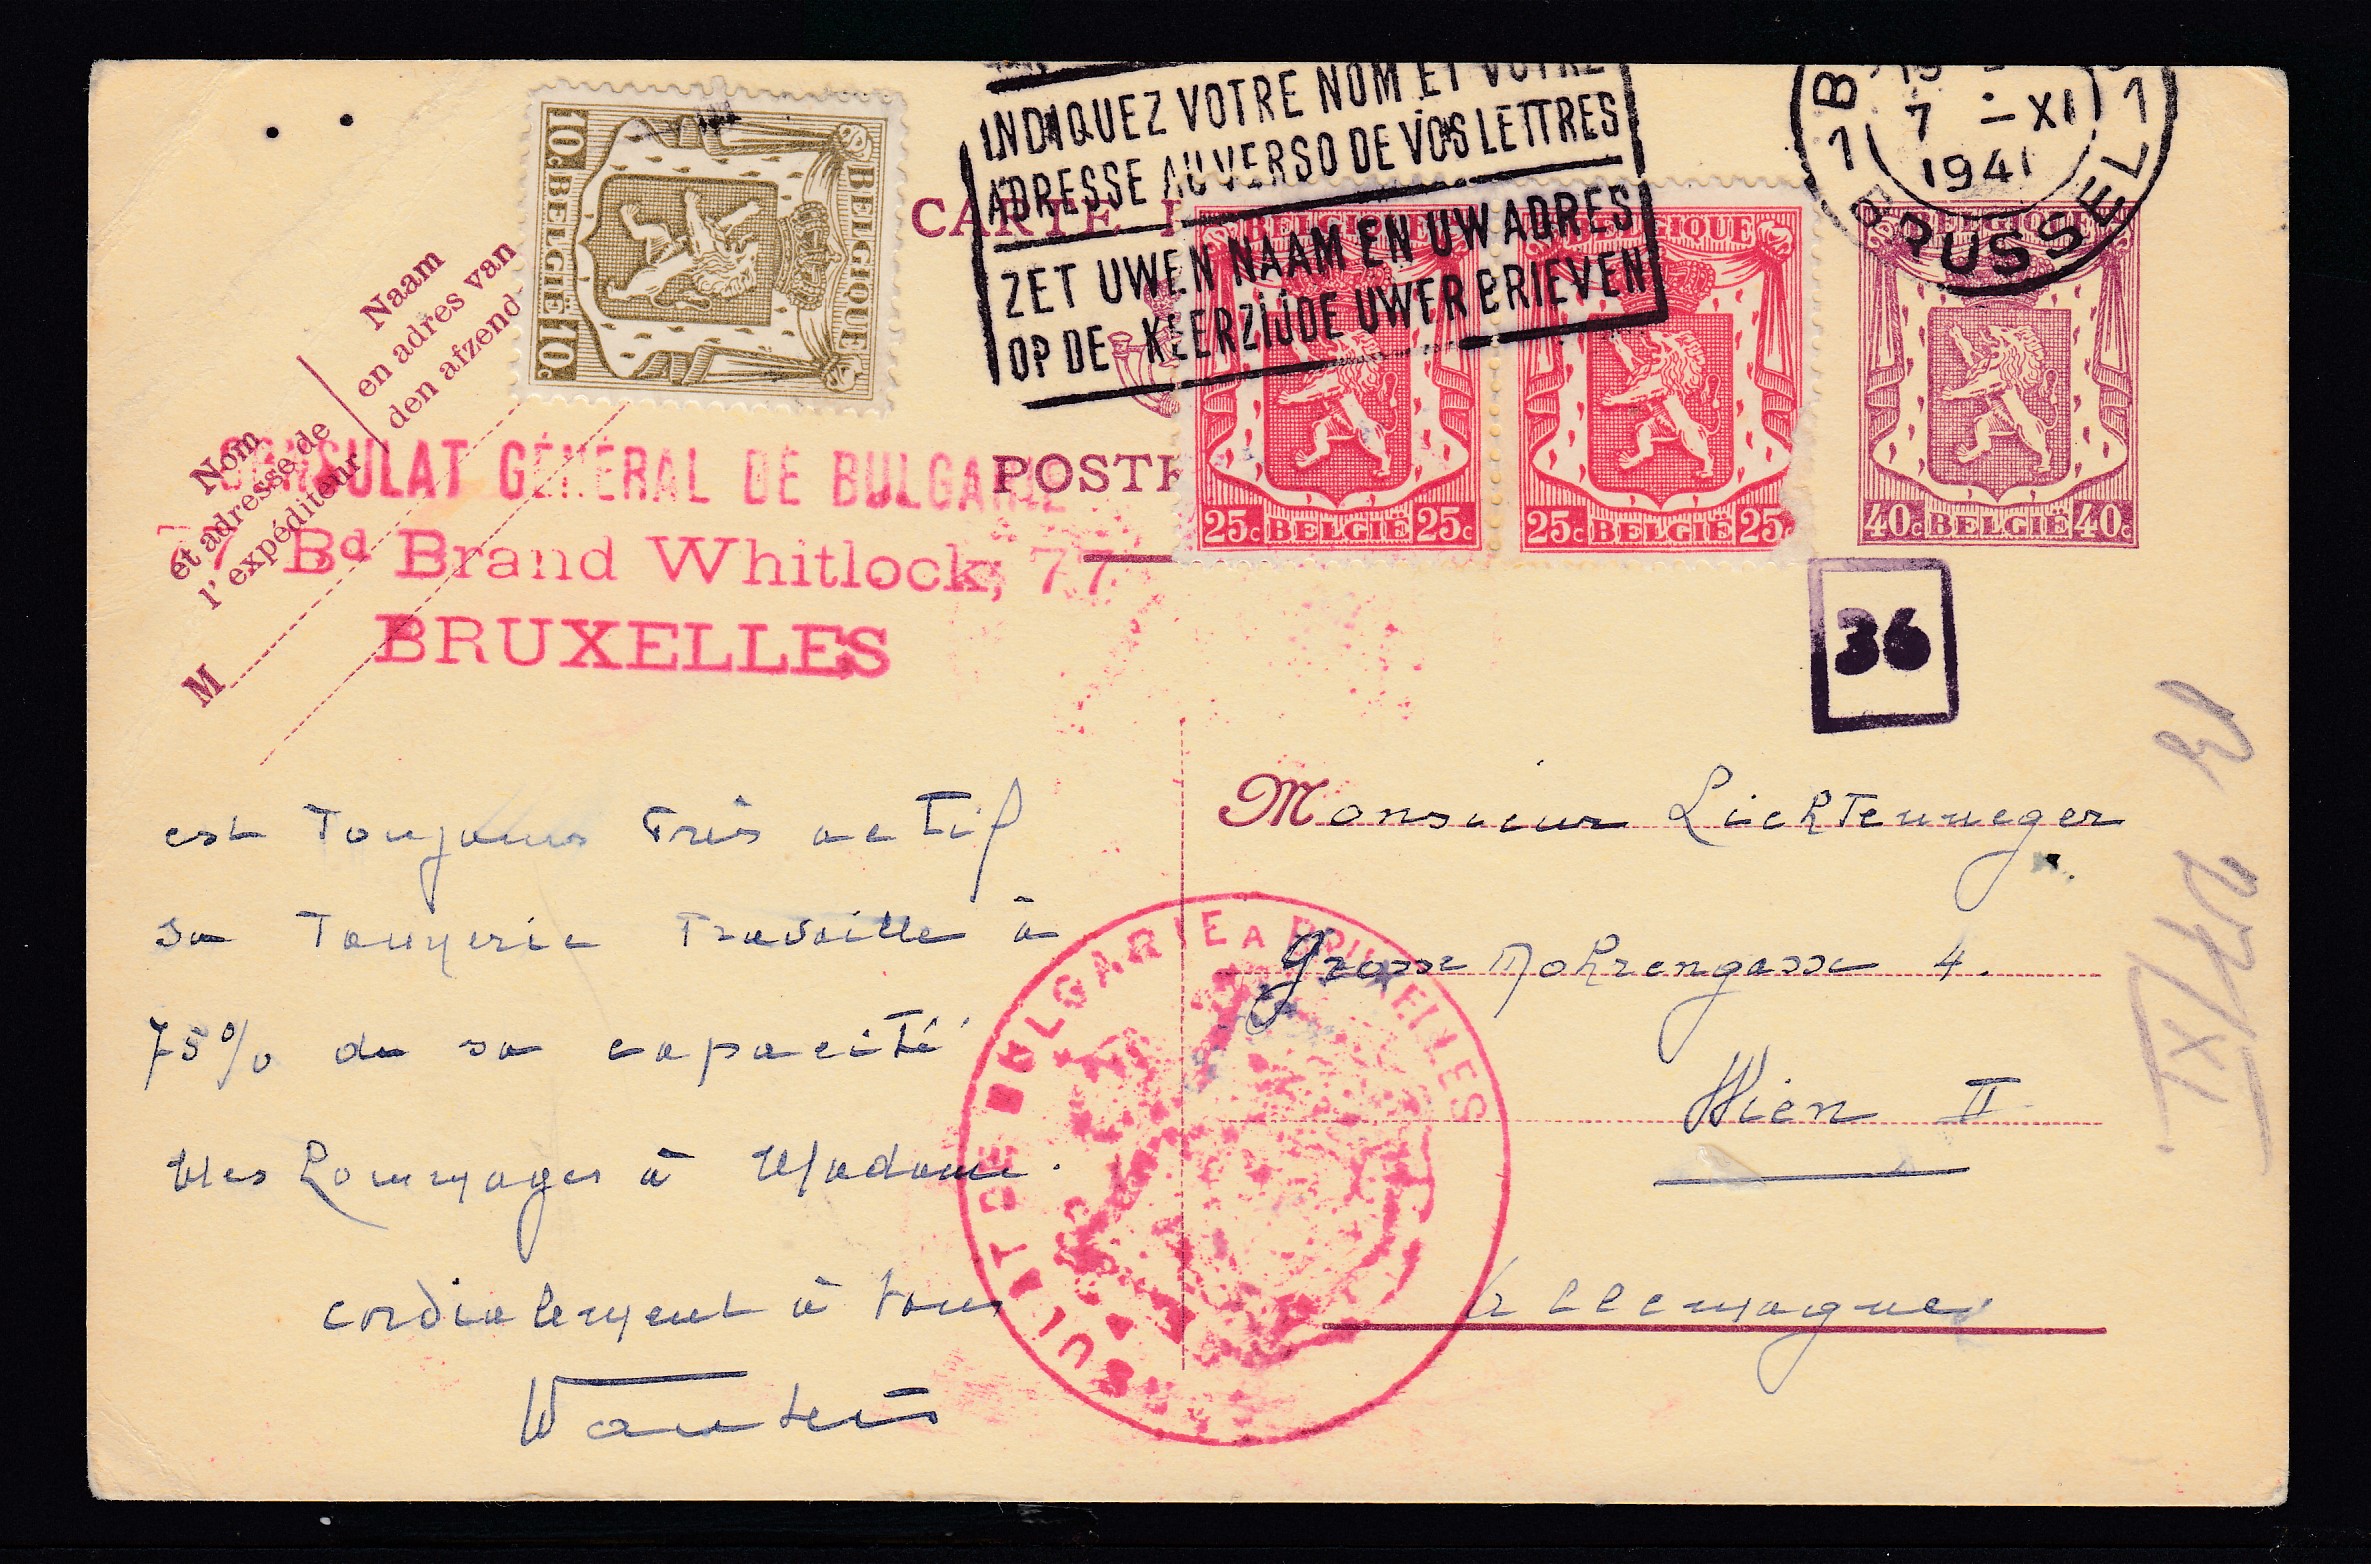 INDIQUEZ VOTRE NOM ET VOTRE
ADRESSE AU VERSO DE VOS LETTRES
ZET UWEN NAAM EN UW ADRES
OP DE KEERZIJDE UWER BRIEVEN
1 B 1
7 -XI
1941
BRUSSEL
BELGIQUE
10c BELGIË 10c
BELGIQUE
25c BELGIË 25c
BELGIQUE
25c BELGIË 25c
BELGIQUE
40c BELGIË 40c
CARTE
POSTK
Naam
en adres van
den afzend
Nom
et adresse de
l'expéditeur
M
CONSULAT GÉNÉRAL DE BULGARIE
77 Bd Brand Whitlock, 77
BRUXELLES
36
est toujours très actif
sa tannerie travaille à
75% de sa capacité
Mes hommages à Madame.
cordialement à tous
Wauters
Monsieur Lichtenneger
Grosse Mohrengasse 4.
Wien II
Allemagne
DE BULGARIE A BRUXELLES